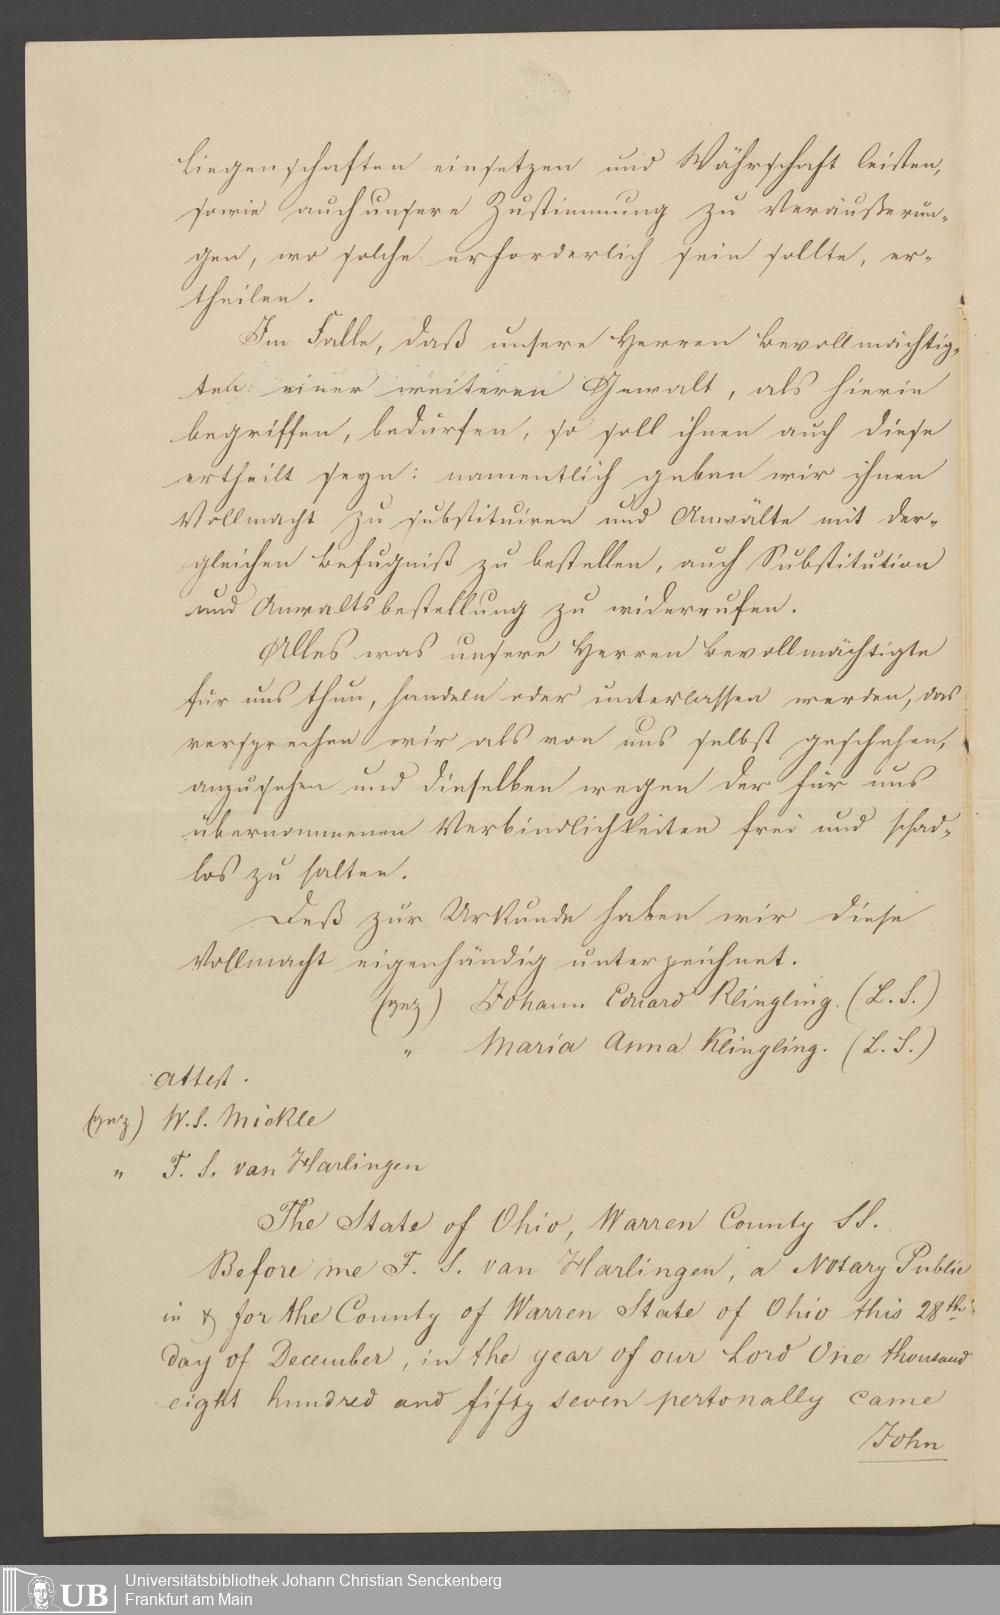 Liegenschaften einsetzen und Währschaft leisten,
sowie auch unsere Zustimmung zu Veräußerun-
gen, wo solche erforderlich sein sollte, er-
theilen.
Im Falle, daß unsere Herren Bevollmächtig-
ten einer weiteren Gewalt, als hierin
begriffen, bedürfen, so soll ihnen auch diese
ertheilt seyn: namentlich geben wir ihnen
Vollmacht zu substituiren und Anwälte mit der-
gleichen Befugniß zu bestellen, auch Substitution
und Anwaltsbestellung zu widerrufen.
Alles was unsere Herren Bevollmächtigte
für uns thun, handeln oder unterlassen werden, das
versprechen wir als von uns selbst geschehen,
anzusehen und dieselben wegen der für uns
übernommenen Verbindlichkeiten frei und schad-
los zu halten.
Deß zur Urkunde haben wir diese
Vollmacht eigenhändig unterzeichnet.
(gez) Johann Eduard Klingling. (L. S.)
" Maria Anna Klingling. (L. S.)
attest.
(gez) W. S. Mickle
" T. S. van Harlingen
The State of Ohio, Warren County SS.
Before me T. S. van Harlingen, a Notary Public
in & for the County of Warren State of Ohio this 28th
day of December, in the year of our Lord One thousand
eight hundred and fifty seven personally came
John
UB Universitätsbibliothek Johann Christian Senckenberg
Frankfurt am Main